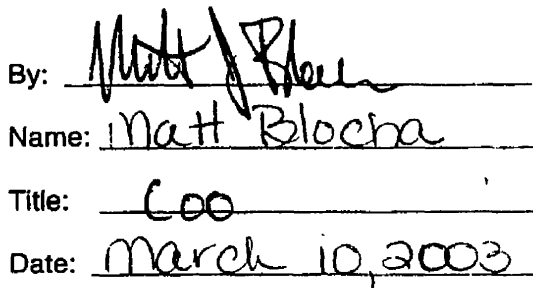 By: Matt J Blocha
Name: Matt Blocha
Title: COO
Date: March 10, 2003